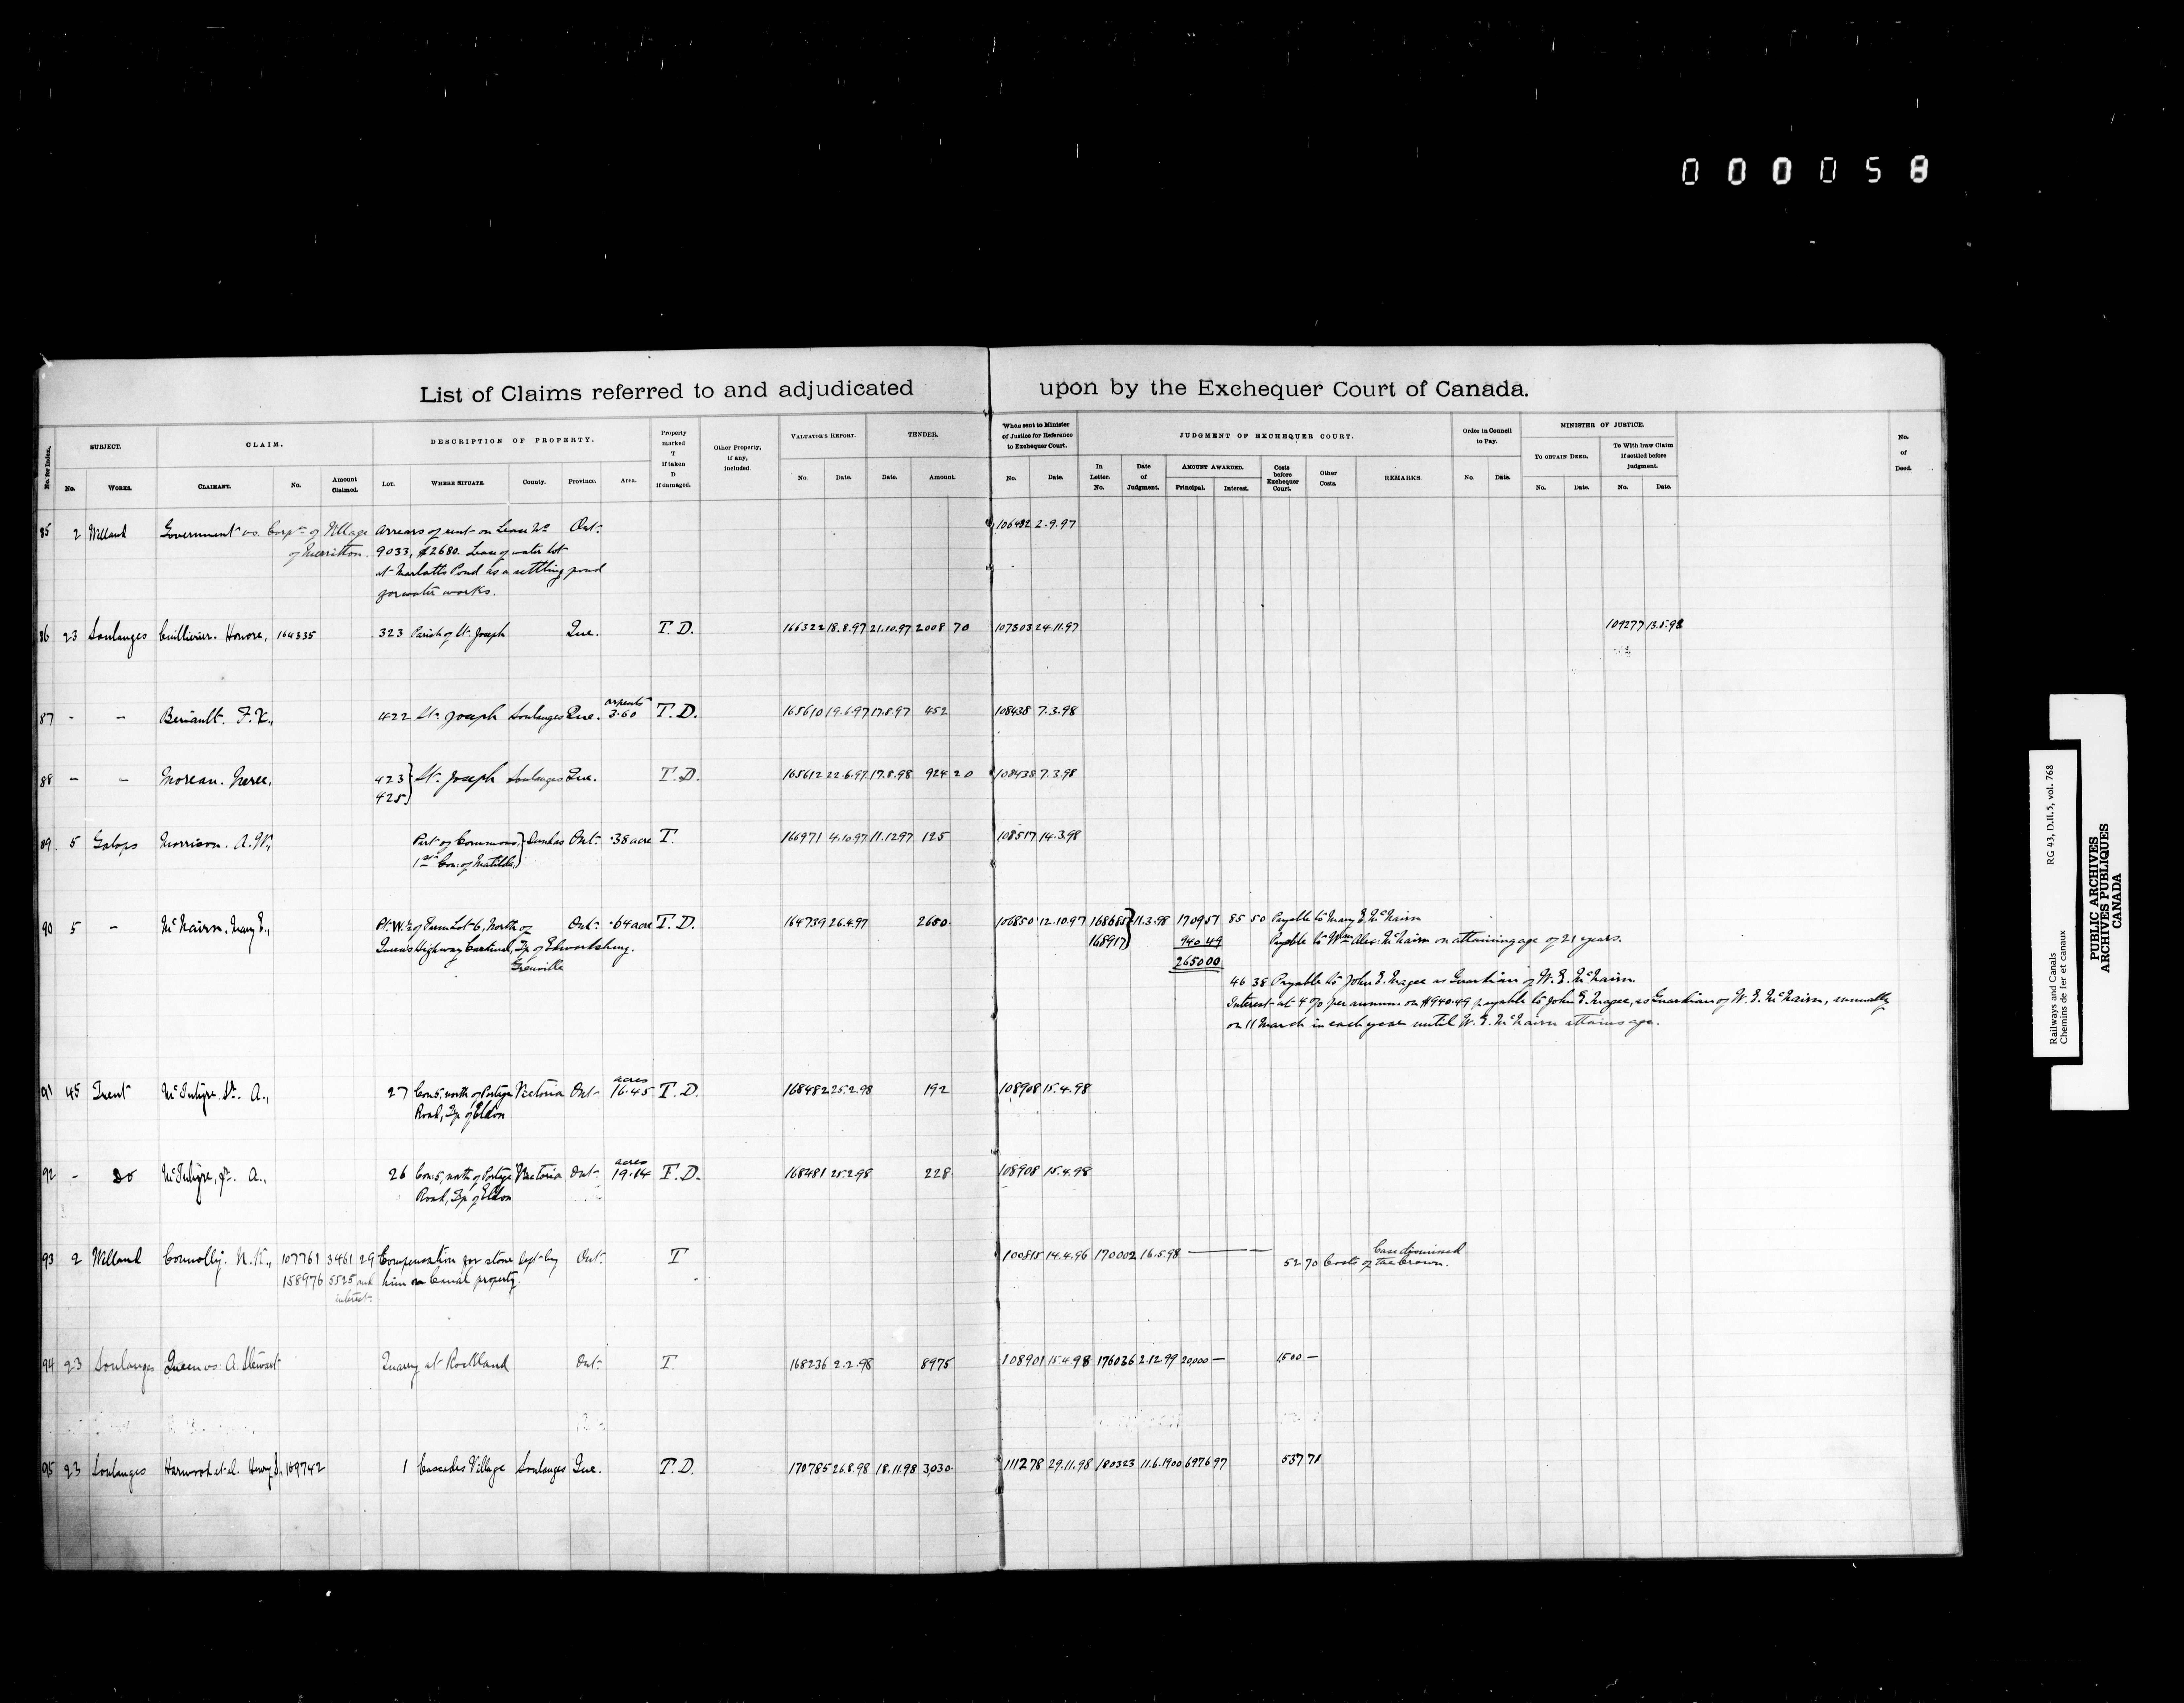 000058
List of Claims referred to and adjudicated upon by the Exchequer Court of Canada.
No. for Index. SUBJECT. CLAIM. DESCRIPTION OF PROPERTY. Property marked T if taken D if damaged. Other Property, if any, included. VALUATOR'S REPORT. TENDER. When sent to Minister of Justice for Reference to Exchequer Court. JUDGMENT OF EXCHEQUER COURT. Order in Council to Pay. MINISTER OF JUSTICE. No. of Deed.
TO OBTAIN DEED. To Withdraw Claim if settled before judgment.
No. WORKS. CLAIMANT. No. Amount Claimed. Lot. WHERE SITUATE. County. Province. Area. No. Date. Date. Amount. No. Date. In Letter. No. Date of Judgment. AMOUNT AWARDED. Principal. Interest. Costs before Exchequer Court. Other Costs. REMARKS. No. Date. No. Date. No. Date.
85 2 Welland Government vs. Corpn of Village Arrears of rent on Lease No Ont. 106432 2.9.97
of Merritton. 9033, $2680. Lease of water lot
at Marlatts Pond as a settling pond
for water works.
86 23 Soulanges Cuillierier. Honore, 164335 323 Parish of St. Joseph Que. T.D. 166322 18.8.97 21.10.97 2008 70 107303 24.11.97 109277 13.5.98
87 - - Beriault. F.X., 422 St. Joseph Soulanges Que. arpents 3.60 T.D. 165610 19.6.97 17.8.97 452 108438 7.3.98
88 - - Moreau. Neree, 423 St. Joseph Soulanges Que. T.D. 165612 22.6.97 17.8.98 924 20 108438 7.3.98
425
89 5 Galops Morrison. A.W., Part of Commons, Dundas Ont. .38 acre T. 166971 4.10.97 11.12.97 125 108517 14.3.98
1st Con: of Matilda,
90 5 - McNairn. Mary E., Pt. W.½ of Farm Lot 6, North of Ont. .64 acre T.D. 164739 26.4.97 2650 106850 12.10.97 168685 11.3.98 1709 51 85 50 Payable to Mary E. McNairn
Queen's Highway Cardinal, Tp. of Edwardsburg. 168917 940 49 Payable to Wm Alex. McNairn on attaining age of 21 years.
Grenville 2650 00
46 38 Payable to John E. Magee as Guardian of W.E. McNairn.
Interest at 4% per annum on $940.49 payable to John E. Magee, as Guardian of W.E. McNairn, annually
on 11 March in each year until W.E. McNairn attains age.
91 45 Trent McIntyre. A., 27 Con: 5, north of Portage Victoria Ont. acres 16.45 T.D. 168482 25.2.98 192 108908 15.4.98
Road, Tp. of Eldon
92 - Do McIntyre, A., 26 Con: 5, north of Portage Victoria Ont. acres 19.14 T.D. 168481 25.2.98 228 108908 15.4.98
Road, Tp. of Eldon
93 2 Welland Connolly. N.K., 107761 3461 29 Compensation for stone kept by Ont. T 100815 14.4.96 170002 16.5.98 — — Case dismissed
158976 5525 and interest him on Canal property. 52 70 Costs of the Crown.
94 23 Soulanges Queen vs. A. Stewart Quarry at Rockland Ont. T. 168236 2.2.98 8975 108901 15.4.98 176036 2.12.99 20,000 — 1,500 —
95 23 Soulanges Harwood et al. Henry S., 169742 1 Cascades Village Soulanges Que. T.D. 170785 26.8.98 18.11.98 3,030 111278 29.11.98 180323 11.6.1900 6976 97 537 71
Railways and Canals RG 43, D.II.5, vol. 768
Chemins de fer et canaux
PUBLIC ARCHIVES
ARCHIVES PUBLIQUES
CANADA